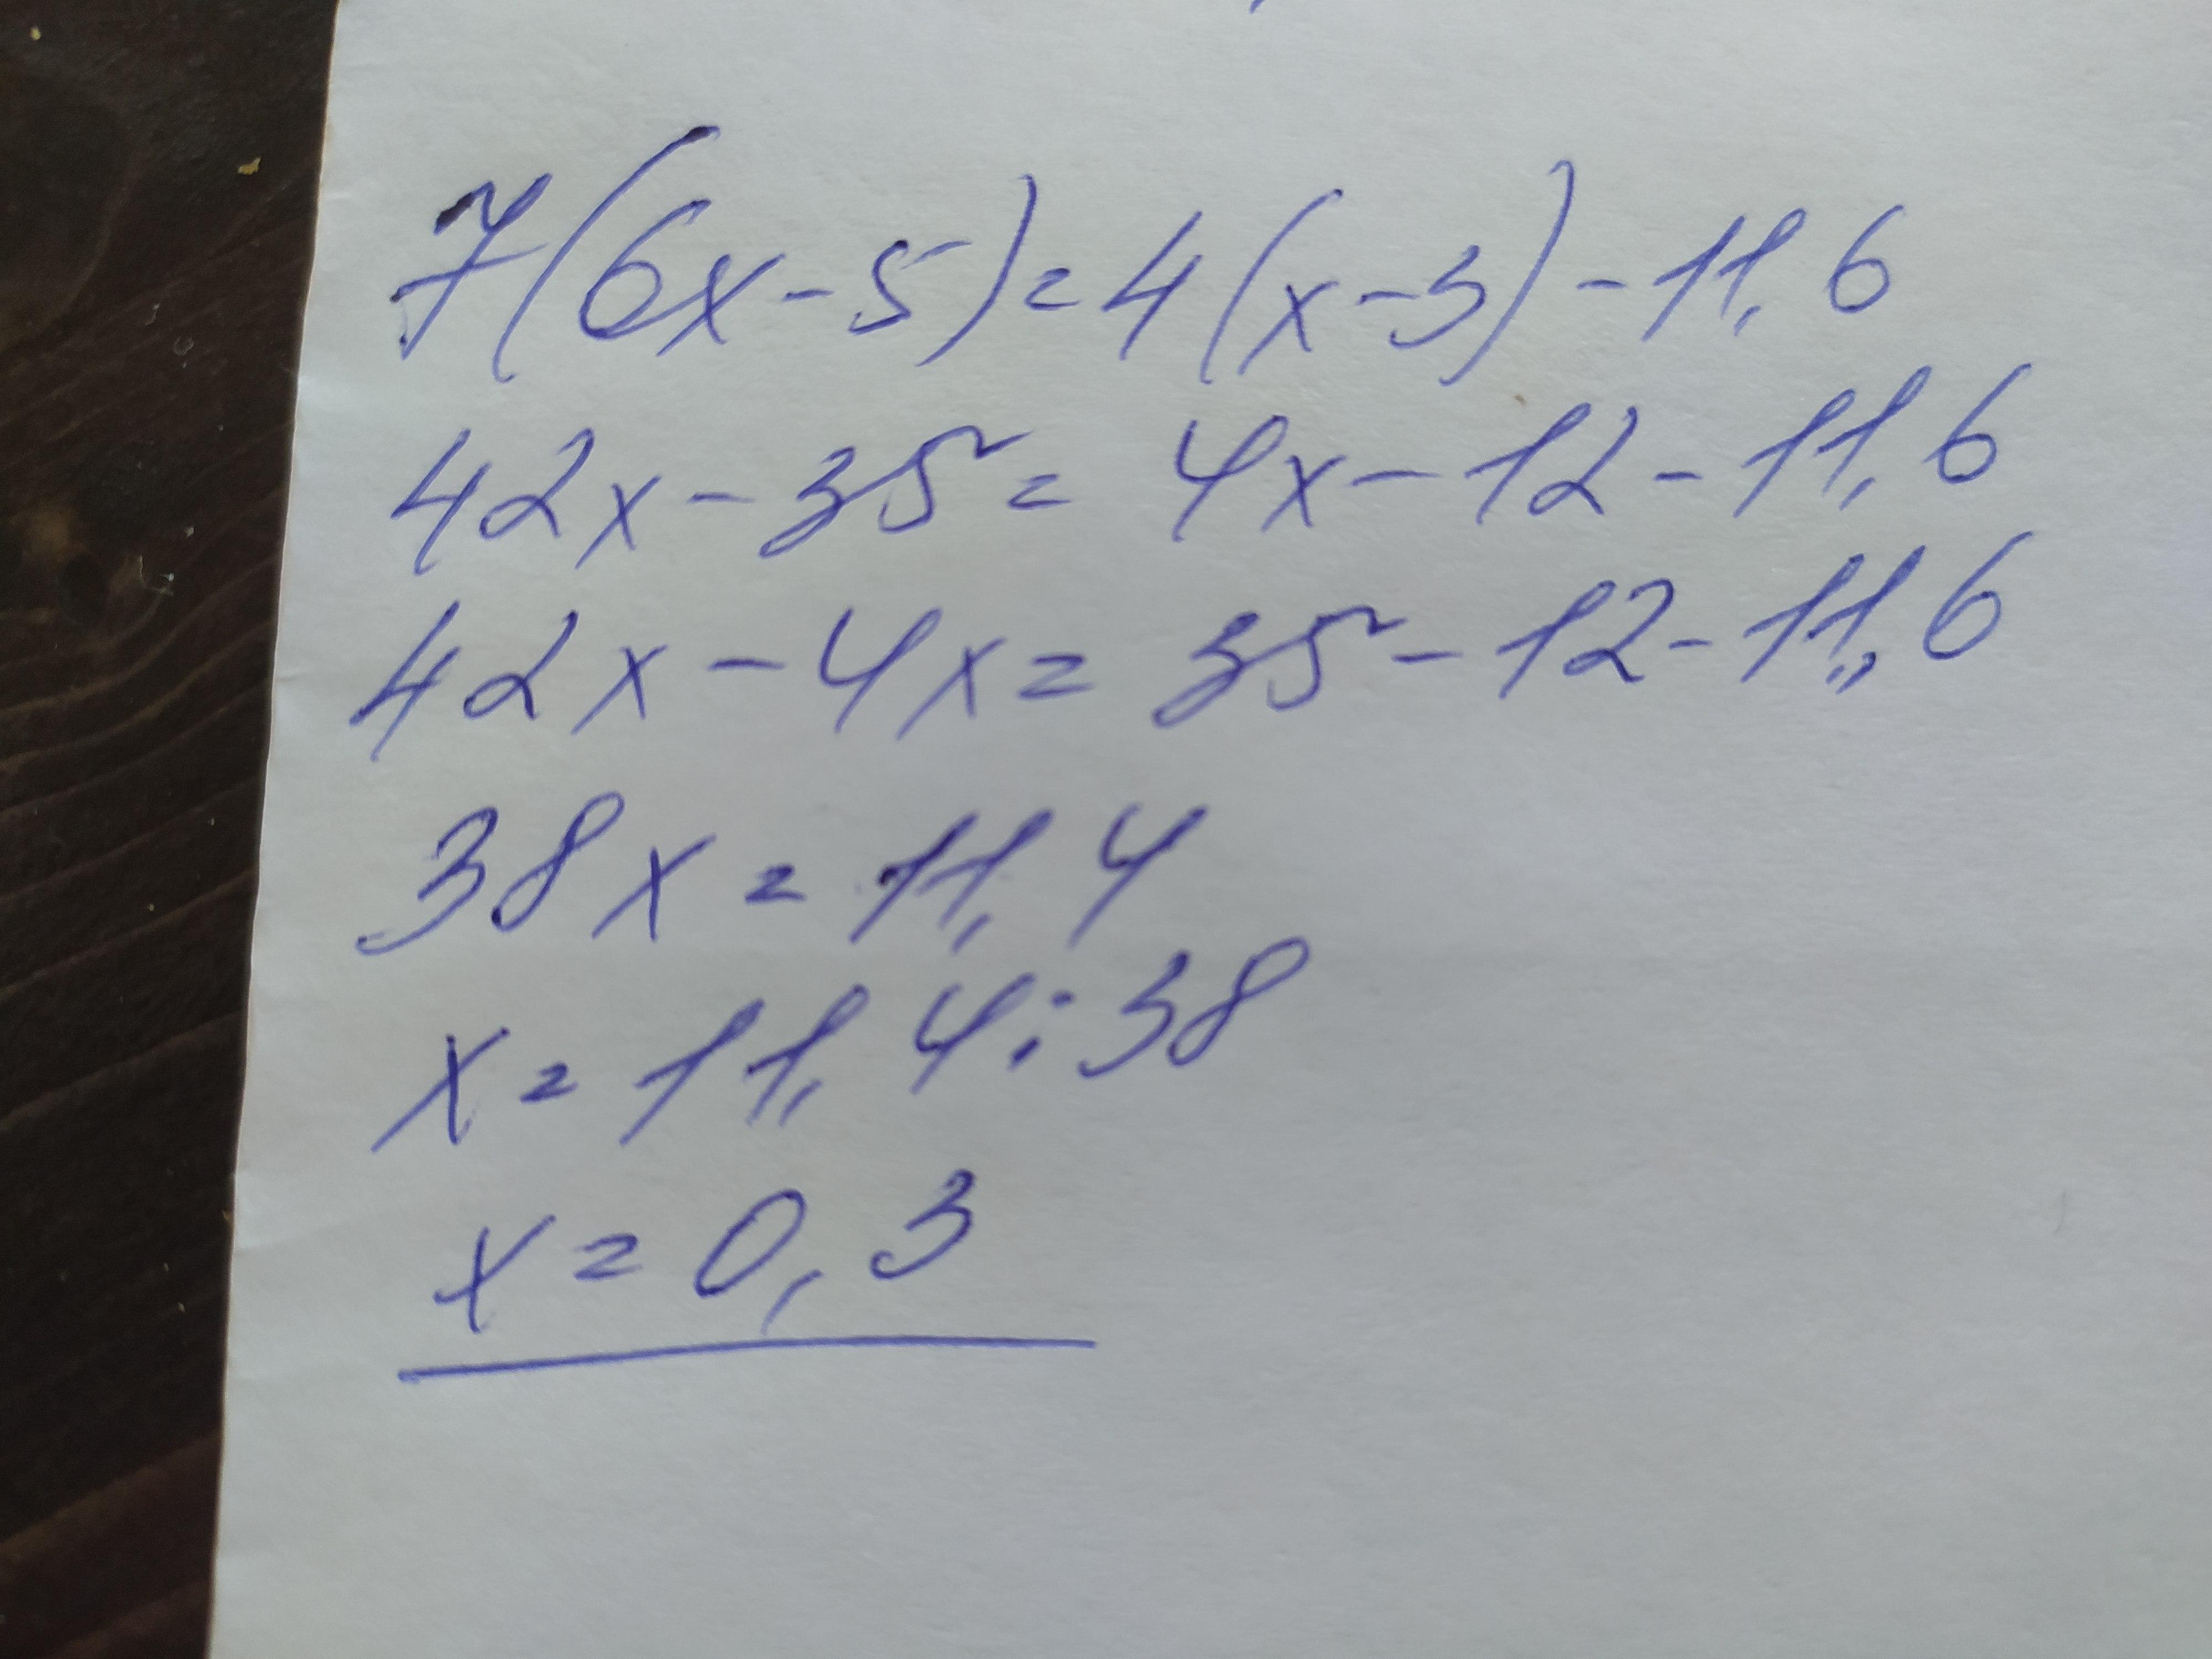 7(6x-5)=4(x-3)-11,6
42x-35=4x-12-11,6
42x-4x=35-12-11,6
38x=11,4
x=11,4:38
x=0,3